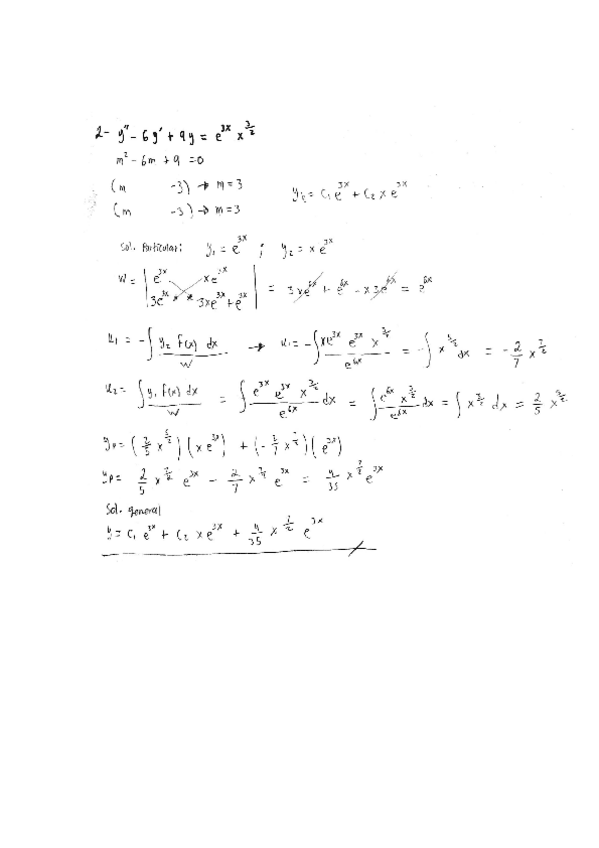 2- y'' - 6y' + 9y = e^{3x} x^{3/2}
m^2 - 6m + 9 = 0
(m -3) → m = 3
(m -3) → m = 3
y_c = C_1 e^{3x} + C_2 x e^{3x}
Sol. Particular: y_1 = e^{3x} ; y_2 = x e^{3x}
W = | e^{3x} xe^{3x} | = 3xe^{6x} + e^{6x} - x3e^{6x} = e^{6x}
| 3e^{3x} 3xe^{3x} + e^{3x} |
u_1 = - ∫ y_2 f(x) dx / W → u_1 = - ∫ xe^{3x} e^{3x} x^{3/2} / e^{6x} = - ∫ x^{5/2} dx = - 2/7 x^{7/2}
u_2 = ∫ y_1 f(x) dx / W = ∫ e^{3x} e^{3x} x^{3/2} / e^{6x} dx = ∫ e^{6x} x^{3/2} / e^{6x} dx = ∫ x^{3/2} dx = 2/5 x^{5/2}
y_p = (2/5 x^{5/2}) (x e^{3x}) + (- 2/7 x^{7/2}) (e^{3x})
y_p = 2/5 x^{7/2} e^{3x} - 2/7 x^{7/2} e^{3x} = 4/35 x^{7/2} e^{3x}
Sol. general
y = C_1 e^{3x} + C_2 x e^{3x} + 4/35 x^{7/2} e^{3x}